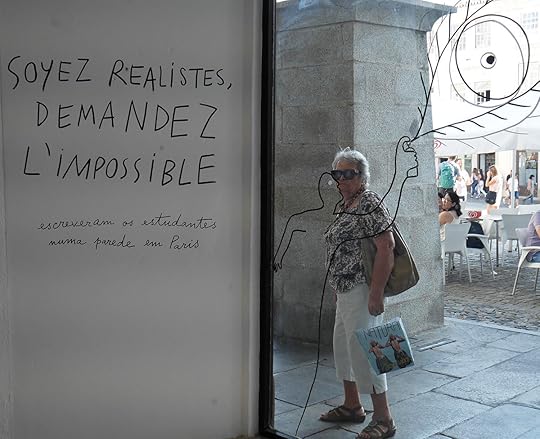 SOYEZ RÉALISTES,
DEMANDEZ
L'IMPOSSIBLE
escreveram os estudantes
numa parede em Paris